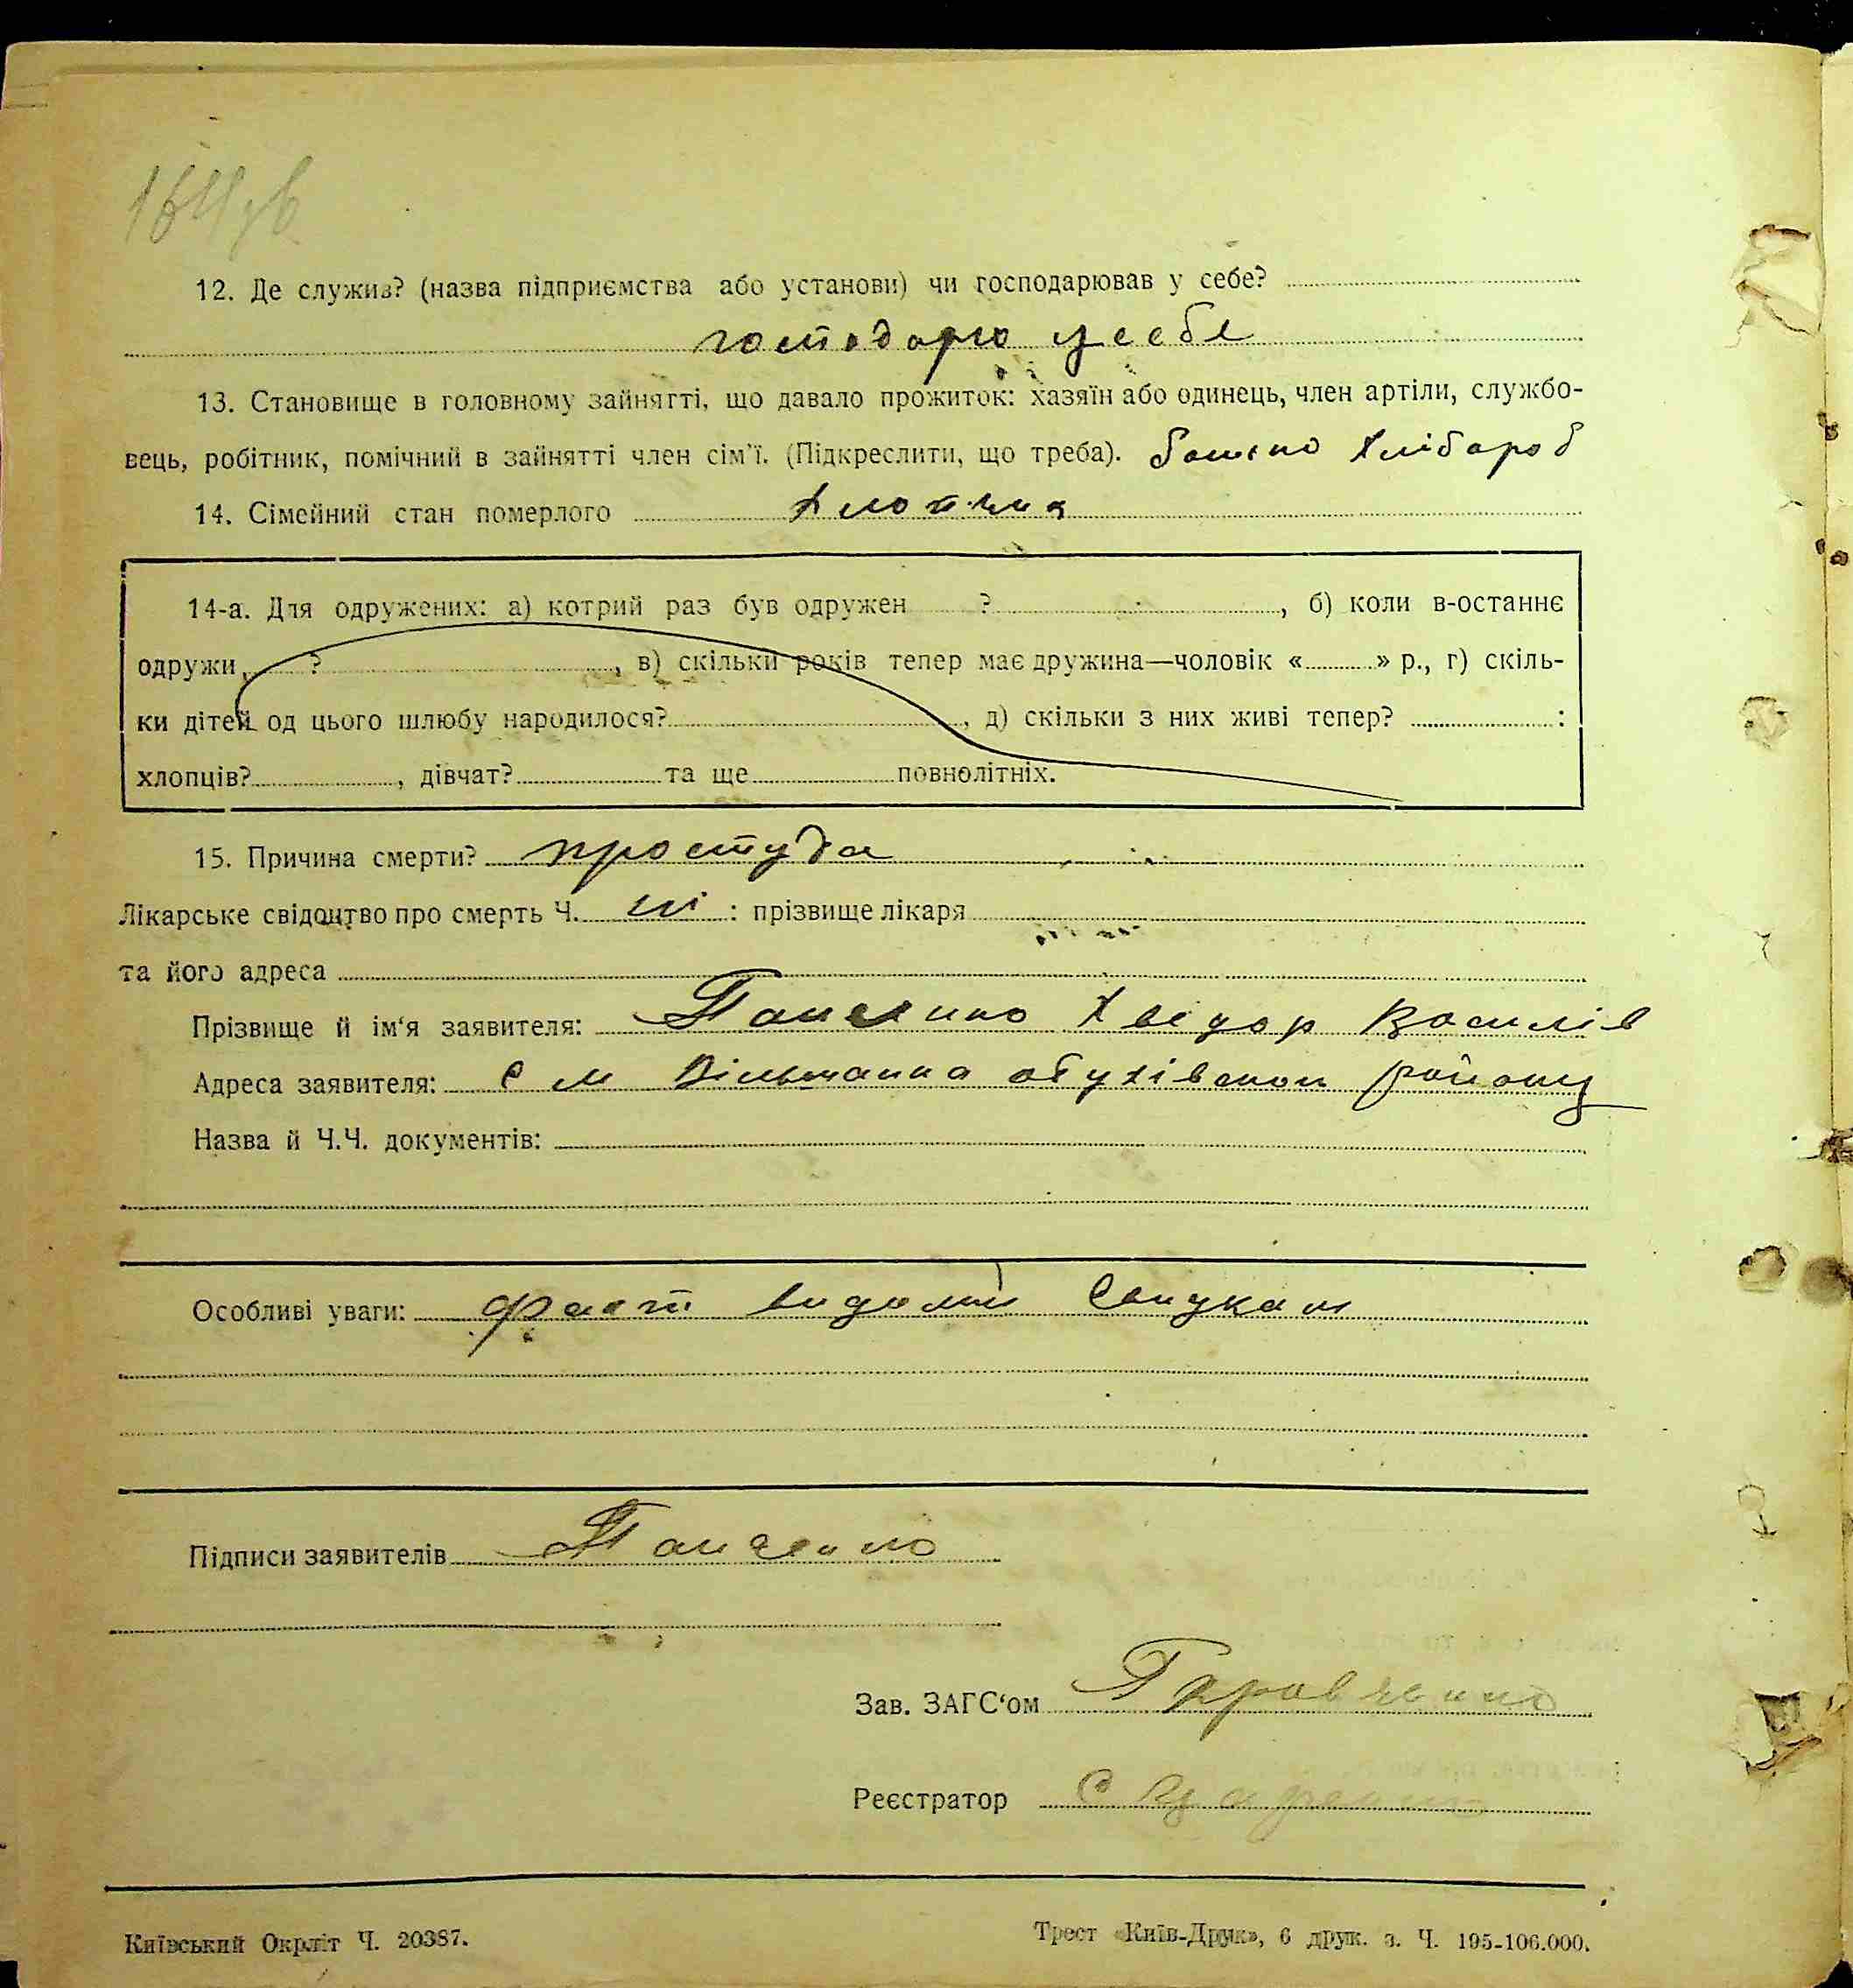 12. Де служив? (назва підприємства або установи) чи господарював у себе?
господарю усебе
13. Становище в головному зайнятті, що давало прожиток: хазяїн або одинець, член артіли, службо-
вець, робітник, помічний в зайнятті член сім'ї. (Підкреслити, що треба). батько хлібароб
14. Сімейний стан померлого
14-а. Для одружених: а) котрий раз був одружен ? , б) коли в-останнє
одружи ? , в) скільки років тепер має дружина—чоловік « » р., г) скіль-
ки дітей од цього шлюбу народилося? , д) скільки з них живі тепер? :
хлопців? , дівчат? та ще повнолітніх.
15. Причина смерти? простуда
Лікарське свідоцтво про смерть Ч. ні : прізвище лікаря
та його адреса
Прізвище й ім'я заявителя: Хведор Василів
Адреса заявителя: с м Вільшанка обухівского району
Назва й Ч.Ч. документів:
Особливі уваги: факт видомий
Підписи заявителів
Зав. ЗАГС'ом
Реєстратор
Київський Окрліт Ч. 20387.
Трест «Київ-Друк», 6 друк. з. Ч. 195-106.000.